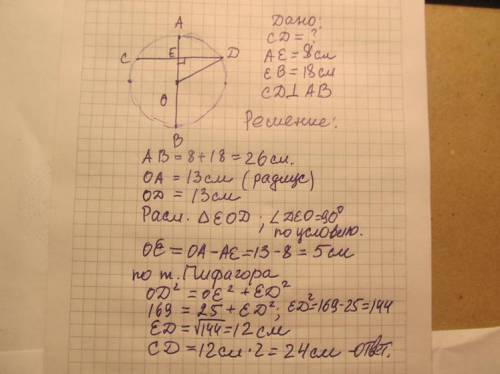 A
C
E
D
O
B
Дано:
CD = ?
AE = 8см
EB = 18см
CD ⊥ AB
Решение:
AB = 8 + 18 = 26 см.
OA = 13 см (радиус)
OD = 13 см
Расм. △EOD; ∠DEO = 90°
по условию.
OE = OA - AE = 13 - 8 = 5 см
по т. Пифагора
OD² = OE² + ED²
169 = 25 + ED²; ED² = 169 - 25 = 144
ED = √144 = 12 см
CD = 12 см · 2 = 24 см - ответ.